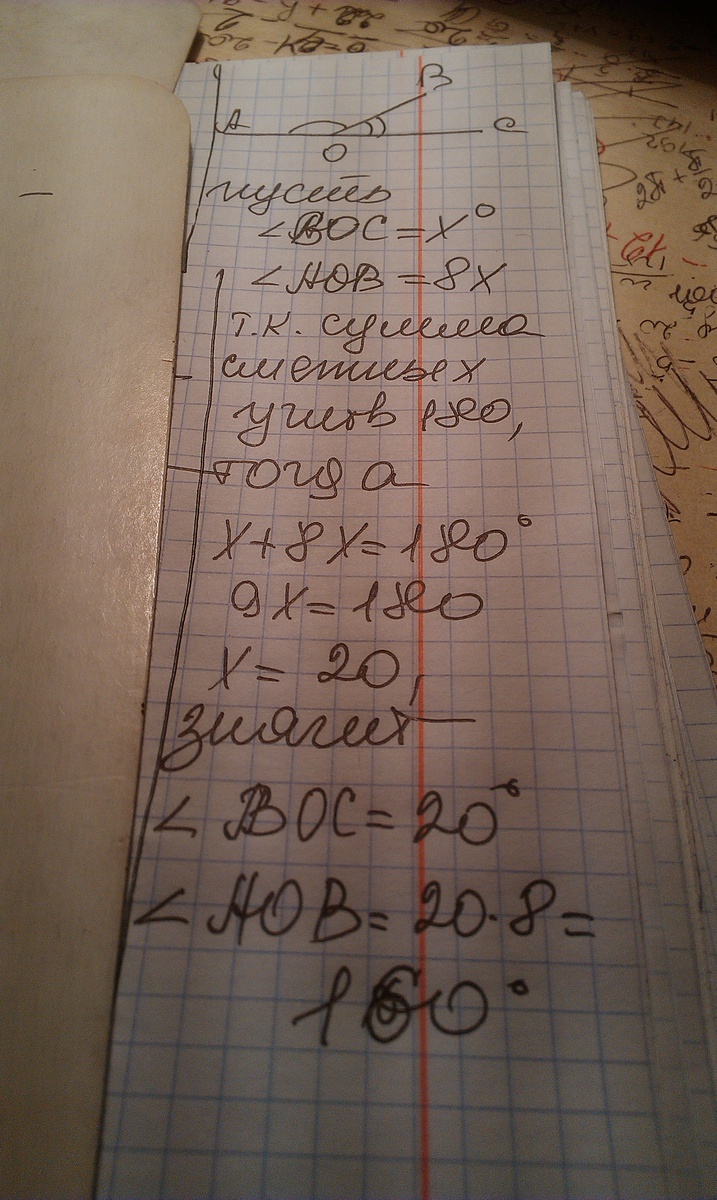 A B C
O
пусть
∠BOC = x°
∠AOB = 8x
т.к. сумма
смежных
углов 180,
тогда
x + 8x = 180°
9x = 180
x = 20,
значит
∠BOC = 20°
∠AOB = 20·8 =
160°